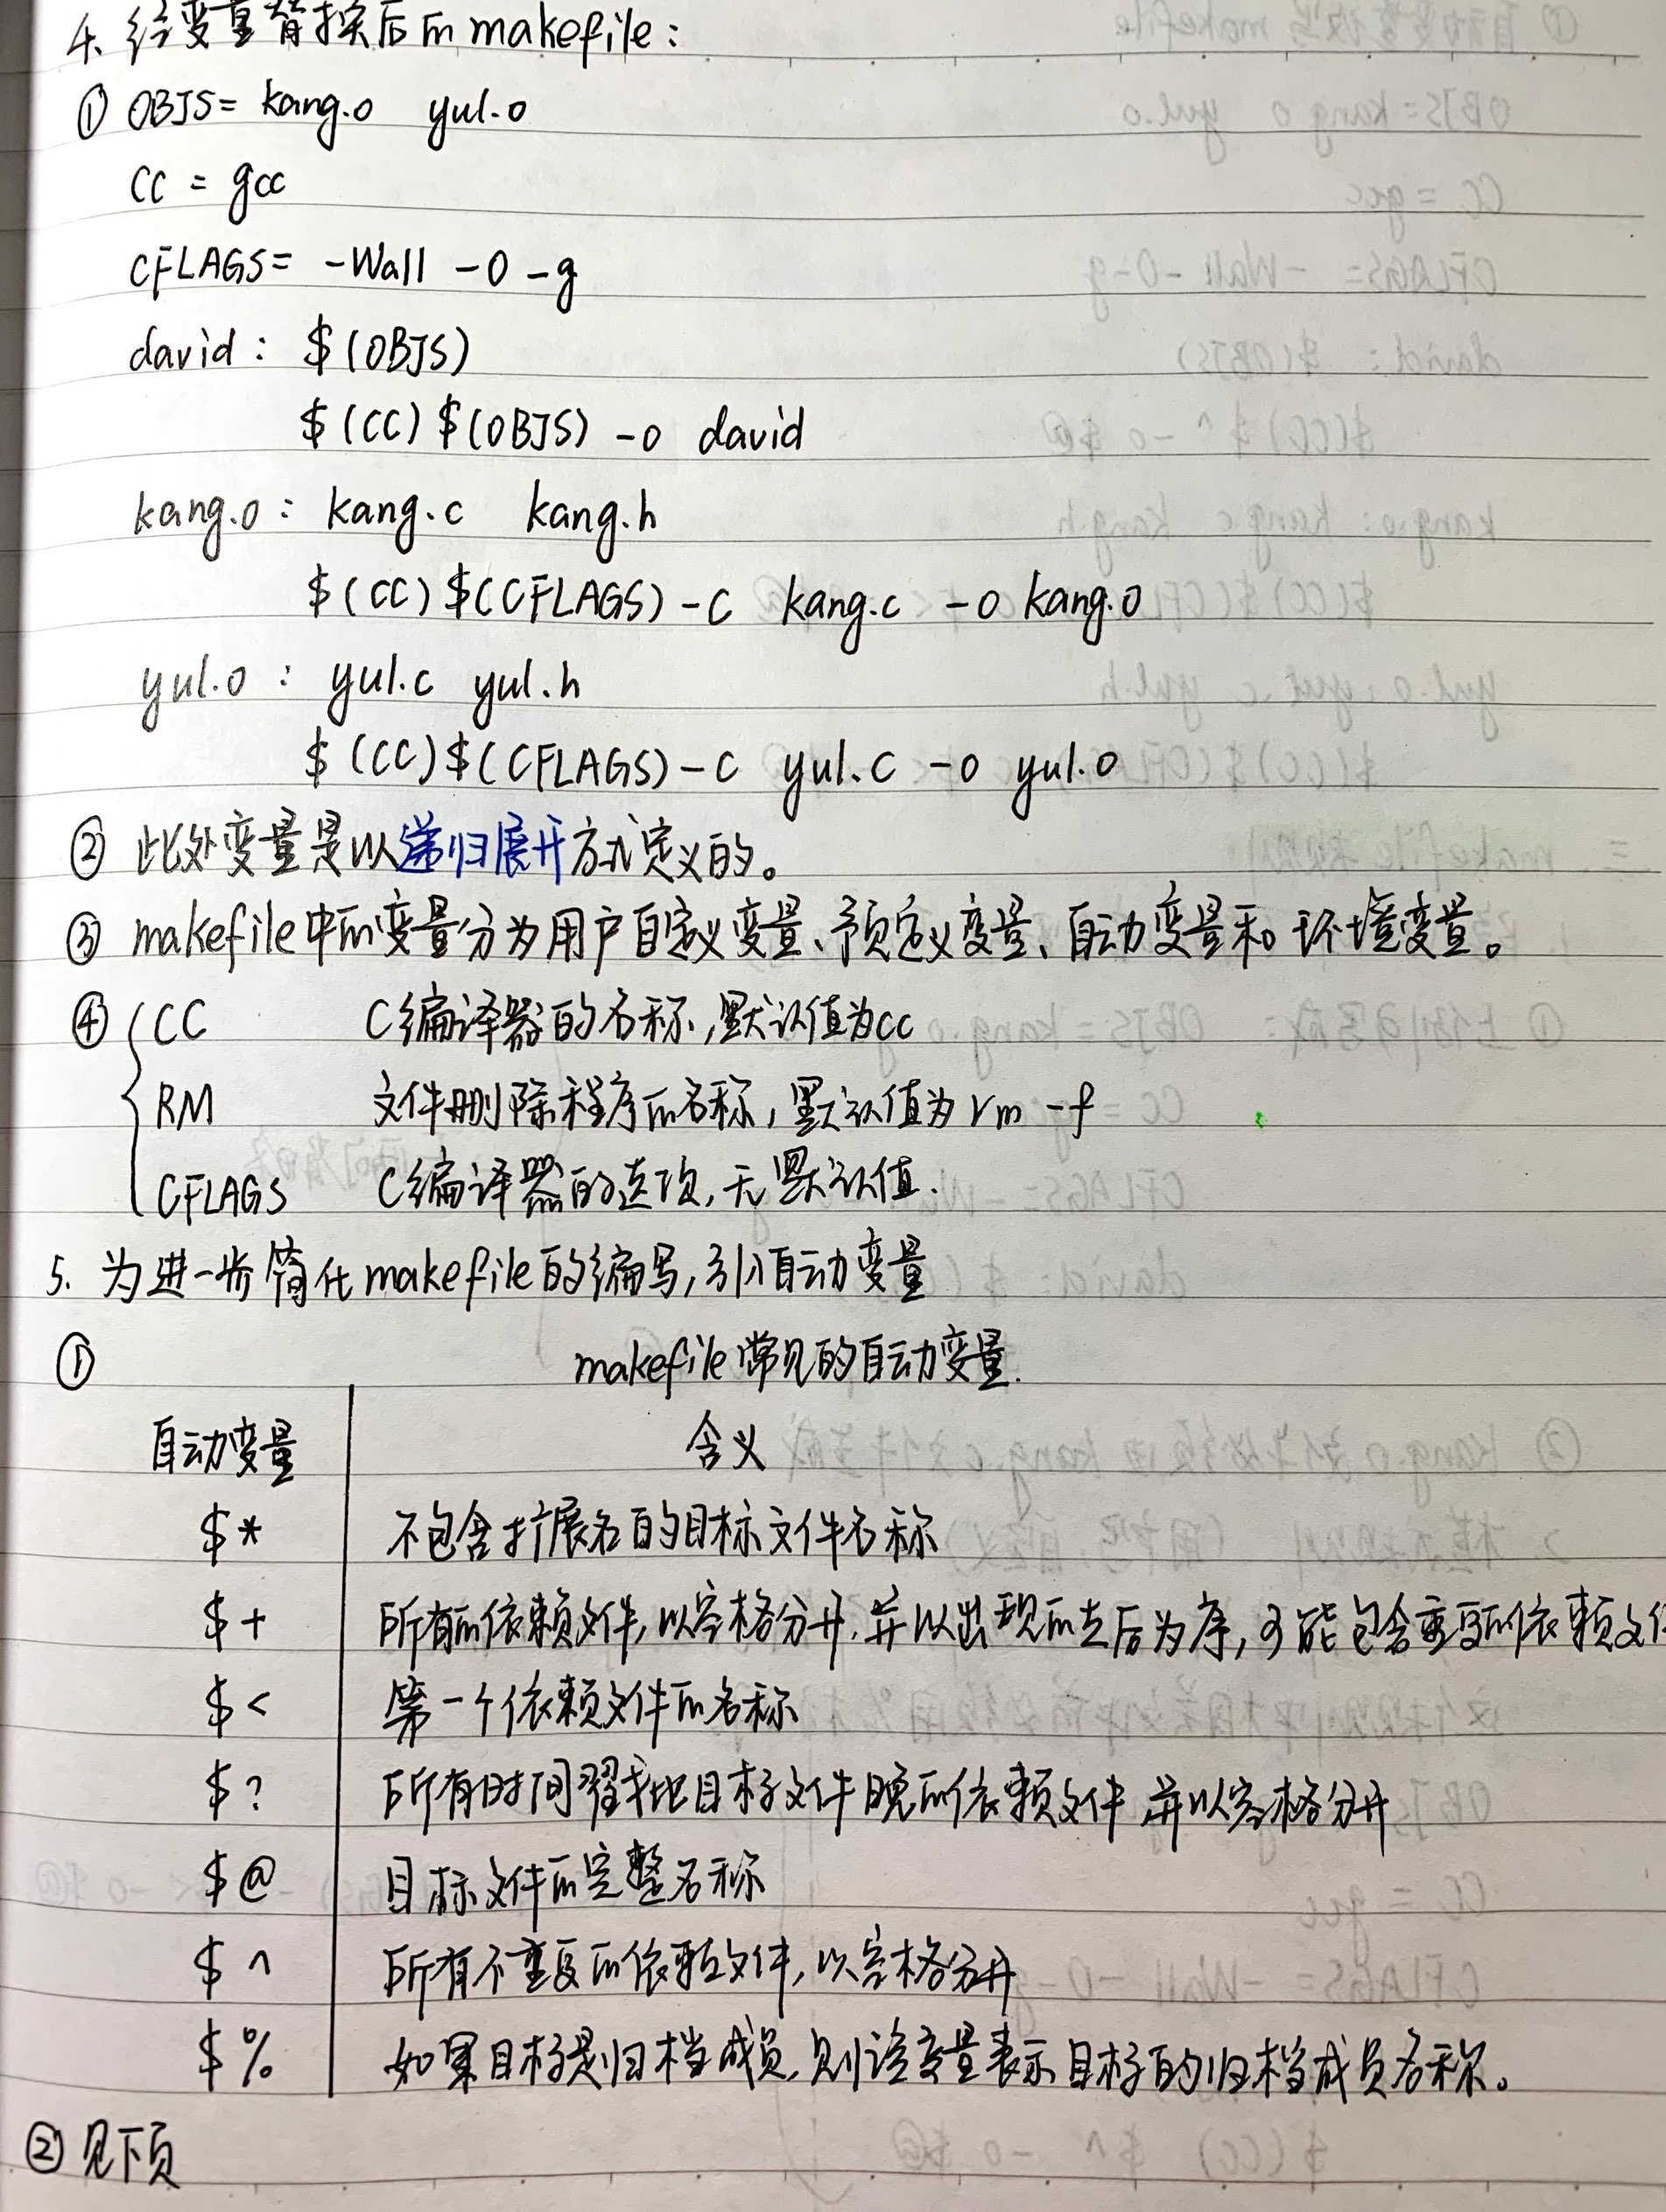 4、经变量替换后的makefile：
① OBJS= kang.o yul.o
CC = gcc
CFLAGS= -Wall -O -g
david： $(OBJS)
$(CC)$(OBJS) -o david
kang.o： kang.c kang.h
$(CC)$(CFLAGS)-c kang.c -o kang.o
yul.o： yul.c yul.h
$(CC)$(CFLAGS)-c yul.c -o yul.o
② 此处变量是以递归展开方式定义的。
③ makefile中的变量分为用户自定义变量、预定义变量、自动变量和环境变量。
④ CC C编译器的名称,默认值为cc
RM 文件删除程序的名称,默认值为rm -f
CFLAGS C编译器的选项,无默认值.
5. 为进一步简化makefile的编写,引入自动变量
① makefile常见的自动变量.
自动变量 含义
$* 不包含扩展名的目标文件名称
$+ 所有的依赖文件,以空格分开,并以出现的先后为序,可能包含重复的依赖文件
$< 第一个依赖文件的名称
$? 所有时间戳比目标文件晚的依赖文件 并以空格分开
$@ 目标文件的完整名称
$^ 所有不重复的依赖文件,以空格分开
$% 如果目标是归档成员,则该变量表示目标的归档成员名称。
② 见下页